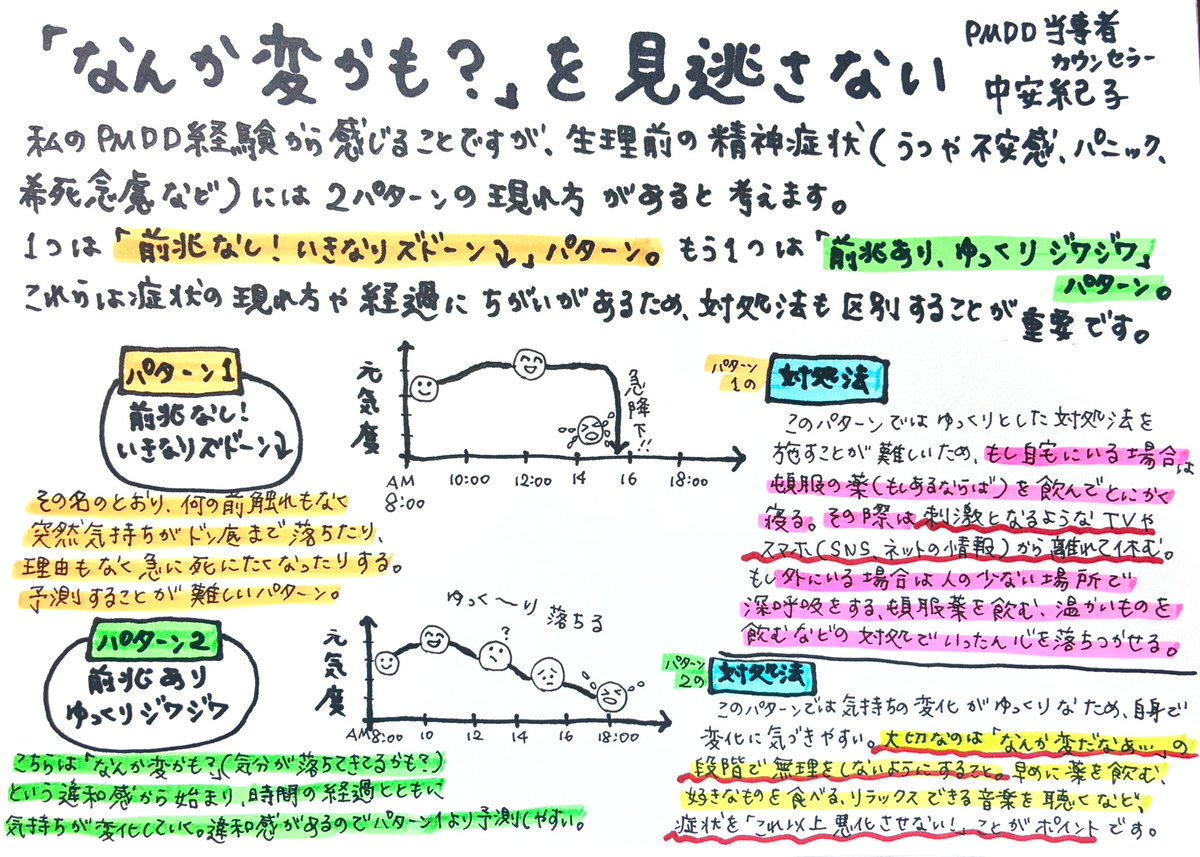 「なんか変かも?」を見逃さない
PMDD当事者
カウンセラー
中安紀子
私のPMDD経験から感じることですが、生理前の精神症状(うつや不安感、パニック、
希死念慮など)には2パターンの現れ方があると考えます。
1つは「前兆なし!いきなりズドーン⤵」パターン。もう1つは「前兆あり、ゆっくりジワジワ」
パターン。
これらは症状の現れ方や経過にちがいがあるため、対処法も区別することが
重要です。
パターン1
前兆なし!
いきなりズドーン⤵
元気度
急降下!!
AM
8:00
10:00
12:00
14
16
18:00
その名のとおり、何の前触れもなく
突然気持ちがドン底まで落ちたり、
理由もなく急に死にたくなったりする。
予測することが難しいパターン。
パターン
1の
対処法
このパターンではゆっくりとした対処法を
施すことが難しいため、もし自宅にいる場合は
頓服の薬(もしあるならば)を飲んでとにかく
寝る。その際は刺激となるようなTVや
スマホ(SNS、ネットの情報)から離れて休む。
もし外にいる場合は人の少ない場所で
深呼吸をする、頓服薬を飲む、温かいものを
飲むなどの対処でいったん心を落ちつかせる。
パターン2
前兆あり
ゆっくりジワジワ
元気度
ゆっく〜り落ちる
?
AM8:00
10
12
14
16
18:00
こちらは「なんか変かも?(気分が落ちてきてるかも?)
という違和感から始まり、時間の経過とともに
気持ちが変化していく。違和感があるのでパターン1より予測しやすい。
パターン
2の
対処法
このパターンでは気持ちの変化がゆっくりなため、自身で
変化に気づきやすい。大切なのは「なんか変だなぁ…」の
段階で無理をしないようにすること。早めに薬を飲む、
好きなものを食べる、リラックスできる音楽を聴くなど、
症状を「これ以上悪化させない!」ことがポイントです。